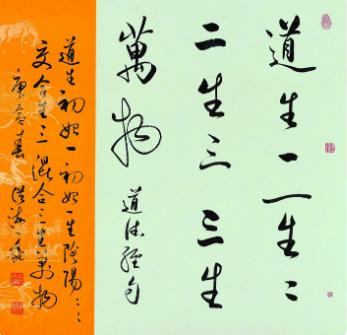 道生一一生二
二生三三生
萬物
道德經句
道生初始一初始一生陰陽〻〻
交合生三混合三生萬物
庚寅春